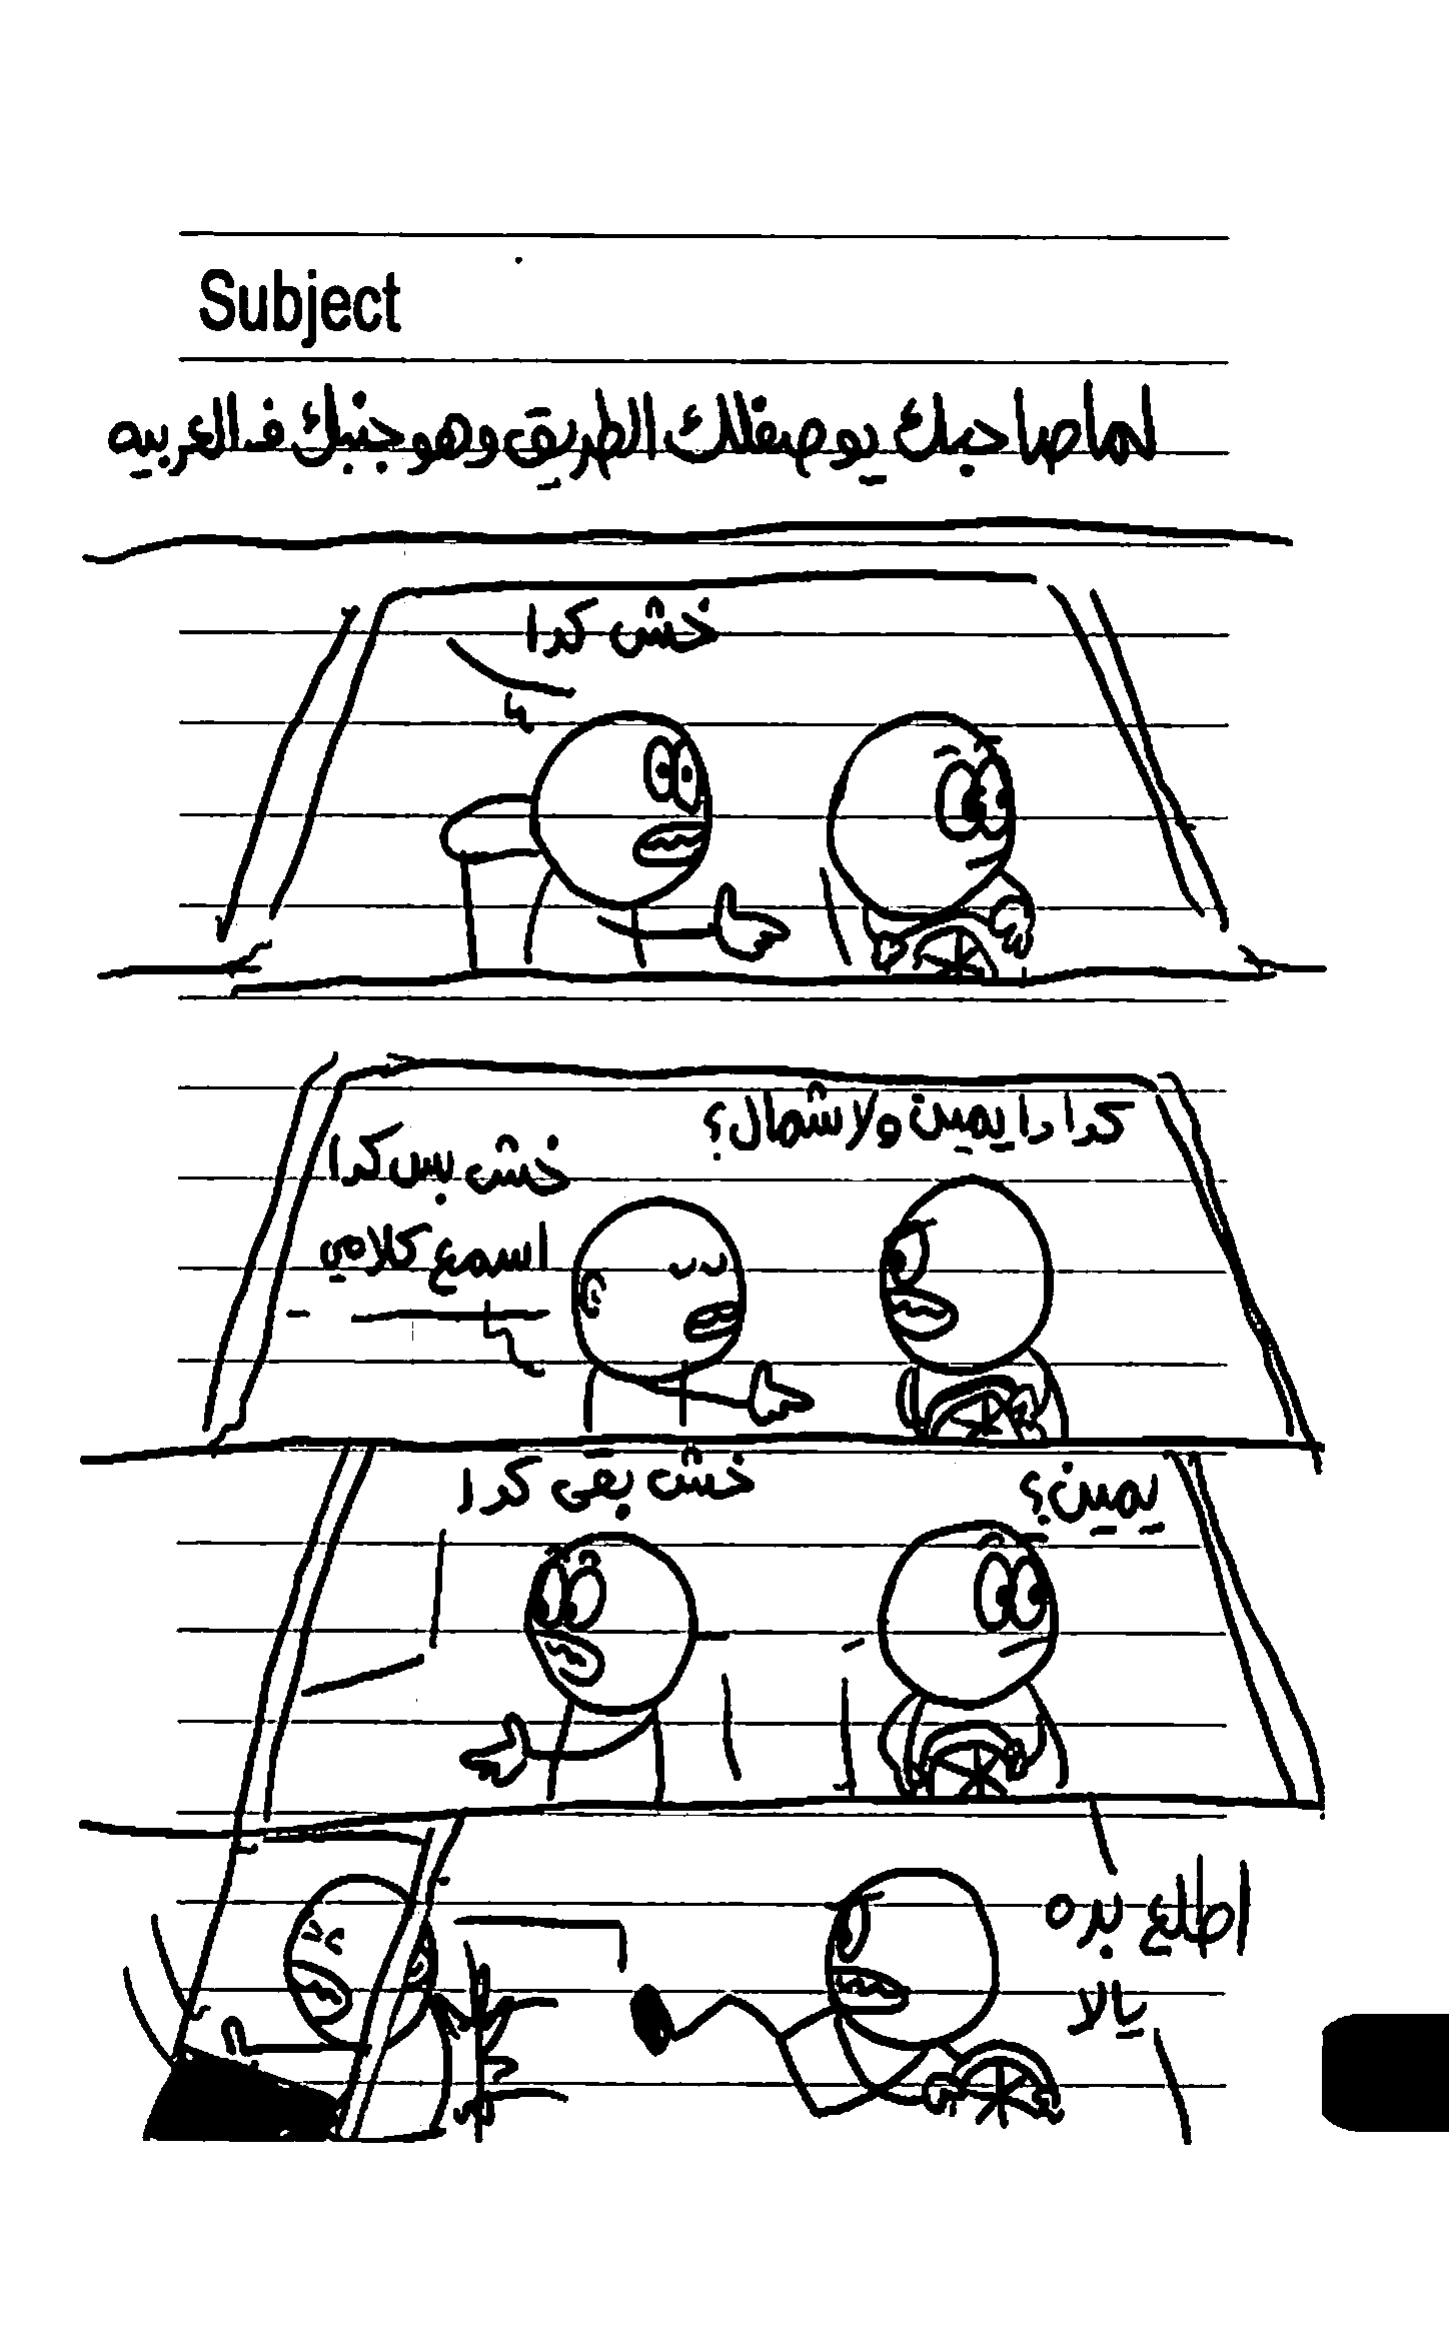 Subject
لما صاحبك يوصفلك الطريق وهو جنبك فـ العربيه
خش كدا
كدا دا يمين ولا شمال؟
خش بس كدا
اسمع كلامي
يمين؟
خش بقى كدا
اطلع بره
يالا